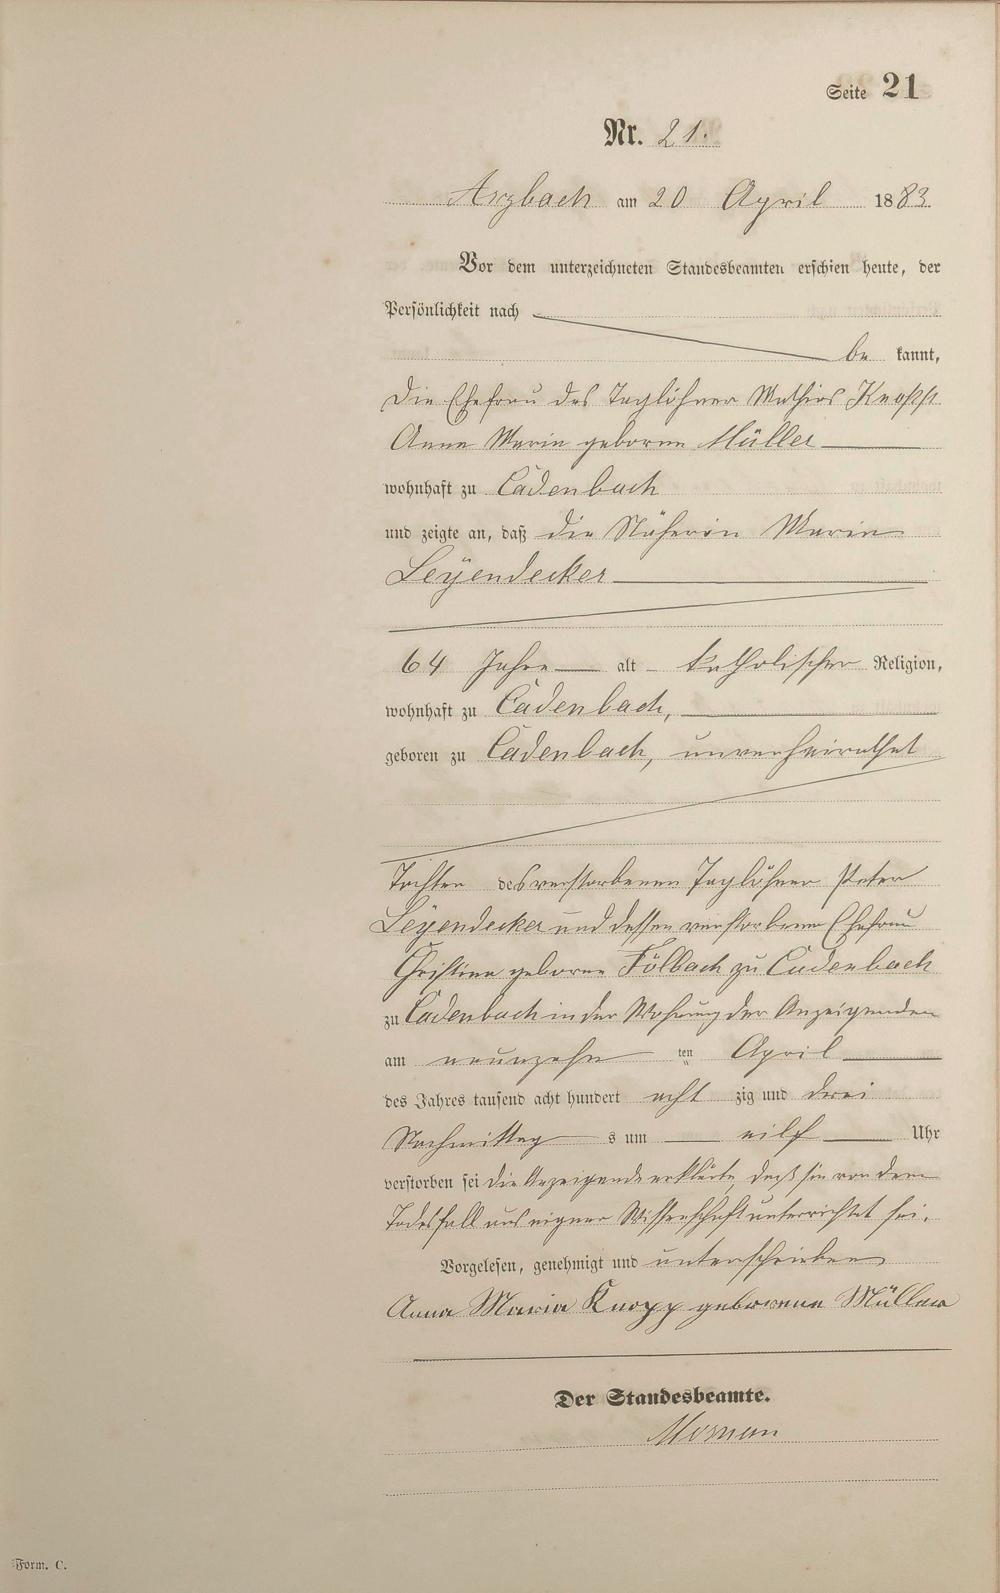 Seite 21
Nr. 21.
Arzbach am 20 April 1883.
Vor dem unterzeichneten Standesbeamten erschien heute, der
Persönlichkeit nach
be kannt,
die Ehefrau des Taglöhner Mathias Knopp
Anna Maria geborne Müller
wohnhaft zu Cadenbach
und zeigte an, daß die Näherin Maria
Leyendecker
64 Jahre alt katholischer Religion,
wohnhaft zu Cadenbach,
geboren zu Cadenbach, unverheirathet
Tochter des verstorbenen Taglöhner Peter
Leyendecker und dessen verstorbene Ehefrau
Christina geborne Fölbach zu Cadenbach
zu Cadenbach in der Wohnung der Anzeigenden
am neunzehn ten April
des Jahres tausend acht hundert acht zig und drei
Nachmittag s um eilf Uhr
verstorben sei die Anzeigende erklärte, daß sie von dem
Todesfall aus eigner Wissenschaft unterrichtet sei.
Vorgelesen, genehmigt und unterschrieben
Anna Maria Knopp geborene Müller
Der Standesbeamte.
Form. C.